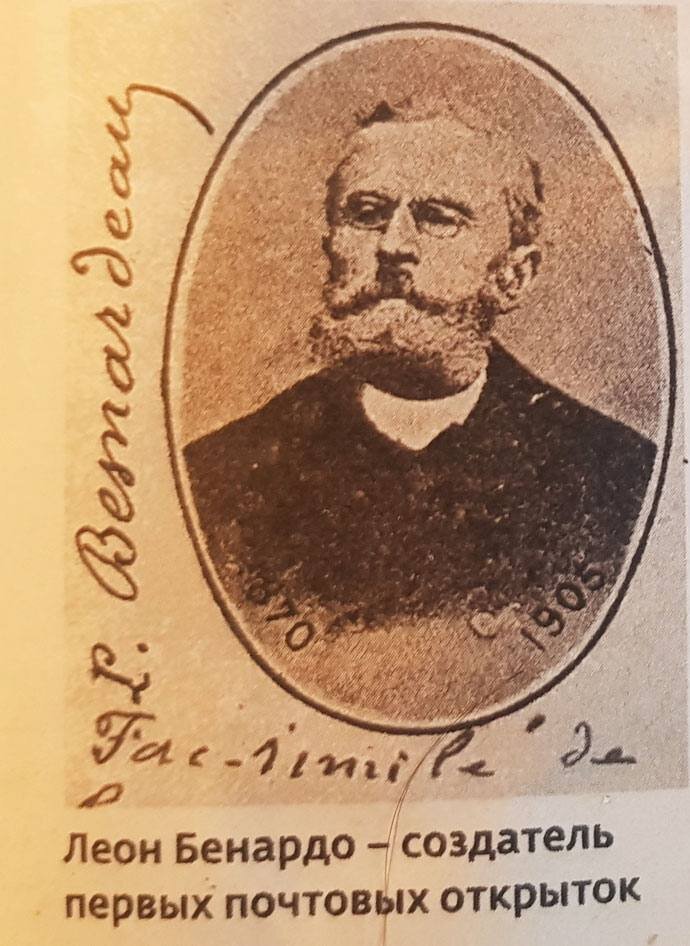 L. Besnardeau
870 1905
Fac-similé de
Леон Бенардо – создатель
первых почтовых открыток